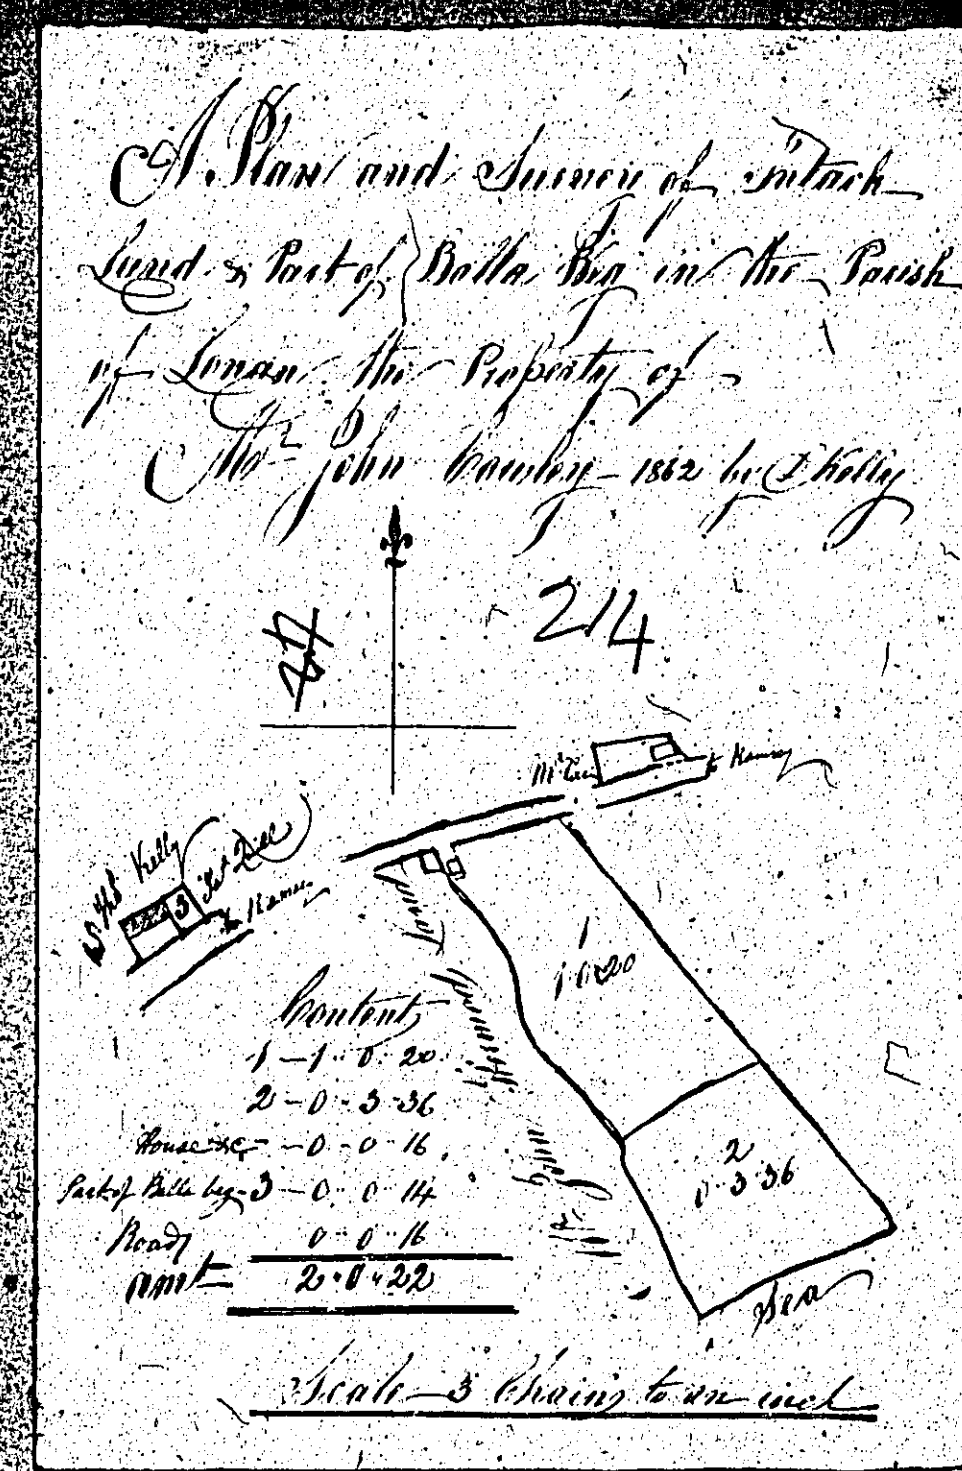 A Plan and Survey of Intack
Land & Part of Balla Beg in the Parish
of Lonan the Property of
Mr John Cowley - 1862 by Kelly
214
Mr
to Ramsey
Kelly
3
to Ramsey
1
1 0 20
Content
1 - 1 .. 0 .. 20
2 - 0 - 3 - 36
House &c - 0 - 0 16
Part of Balla beg - 3 - 0 .. 0 .. 14
Road 0 .. 0 .. 16
amt 2 .. 0 .. 22
2
0 .. 3 .. 36
Mr John
Sea
Scale - 3 Chains to an inch